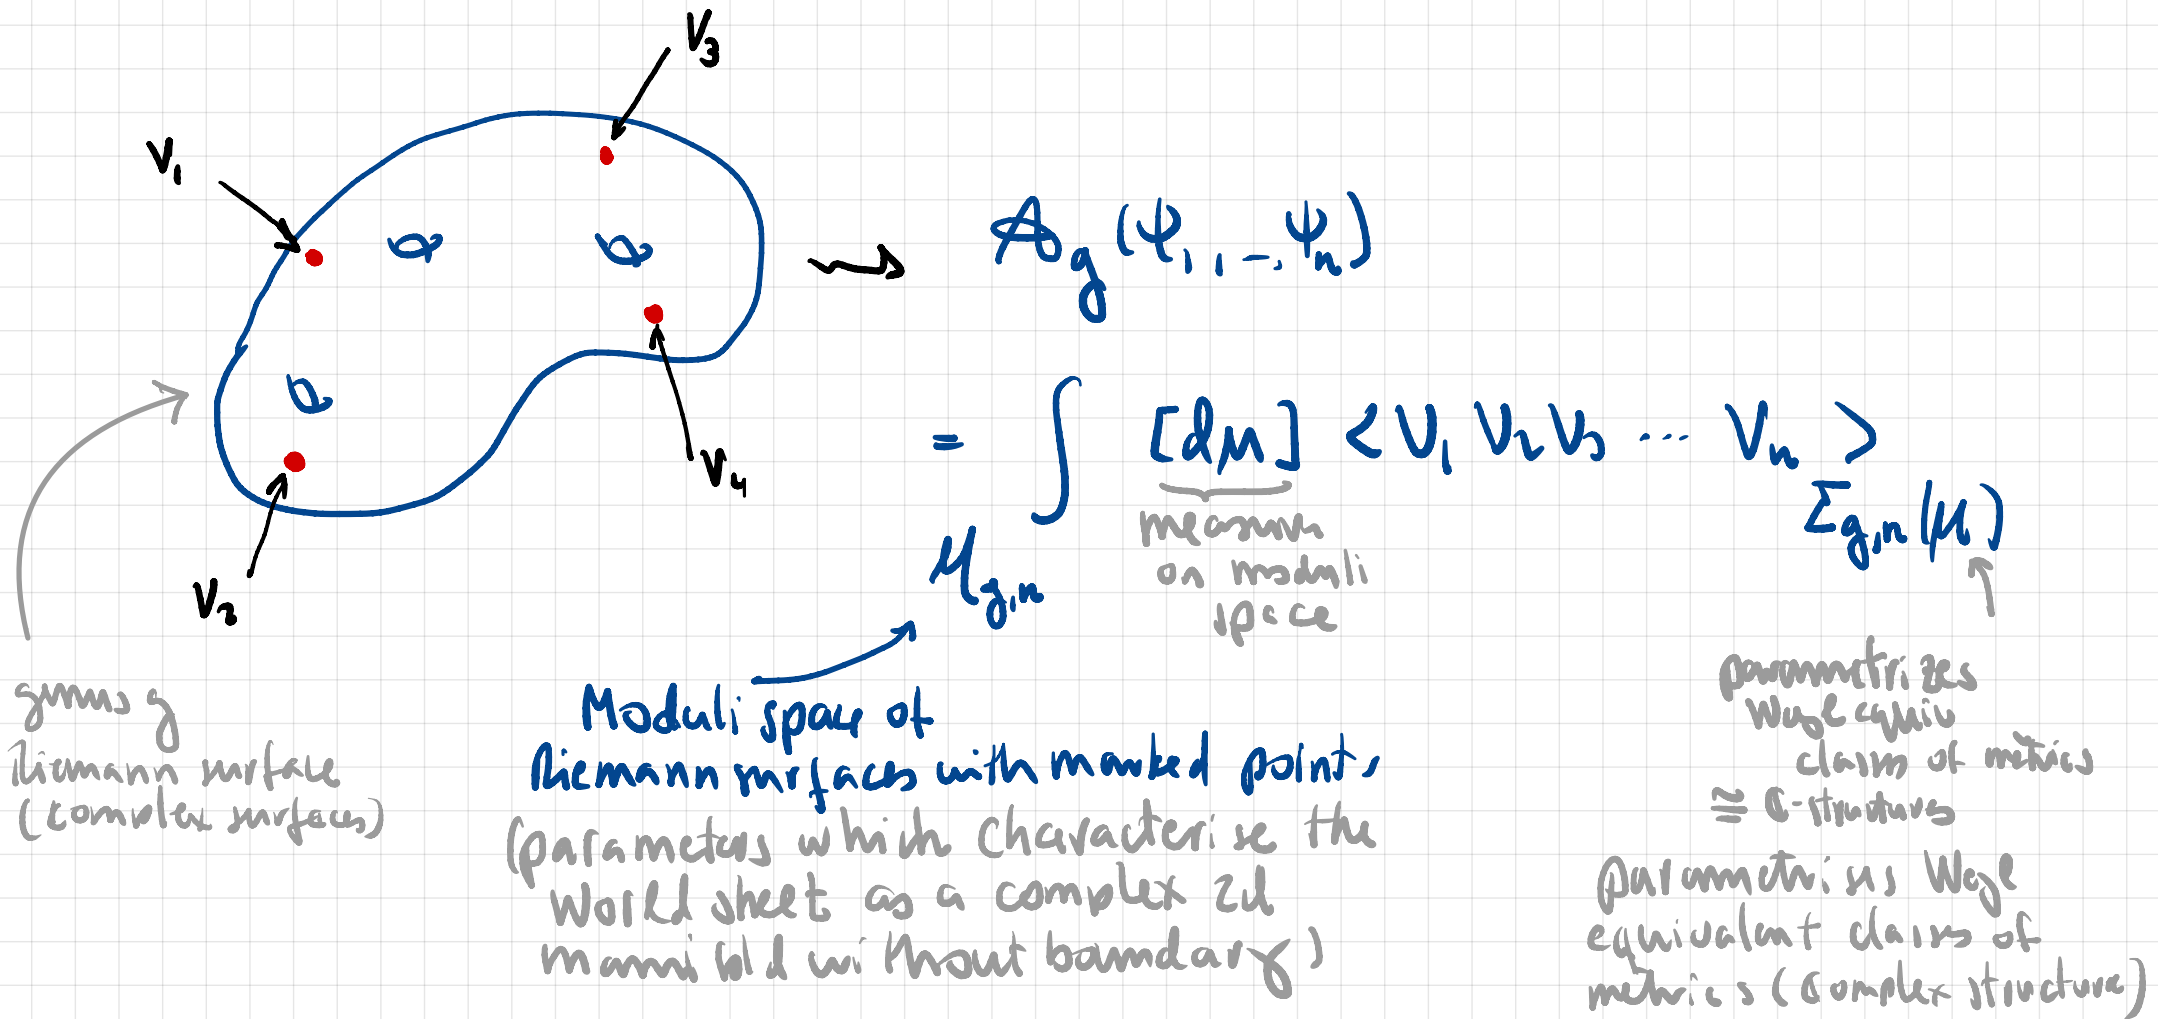 V₃
V₁
A_g (ψ₁, ..., ψ_n)
= ∫_{M_{g,n}} [dμ] <V₁ V₂ V₃ ... V_n>_{Σ_{g,n}(μ)}
V₄
V₂
measure
on moduli
space
genus g
Riemann surface
(complex surfaces)
Moduli space of
Riemann surfaces with marked points
(parameters which characterise the
world sheet as a complex 2d
manifold without boundary)
parametrizes
Weyl equiv
classes of metrics
≅ ℂ-structures
parametrises Weyl
equivalent classes of
metrics (complex structure)